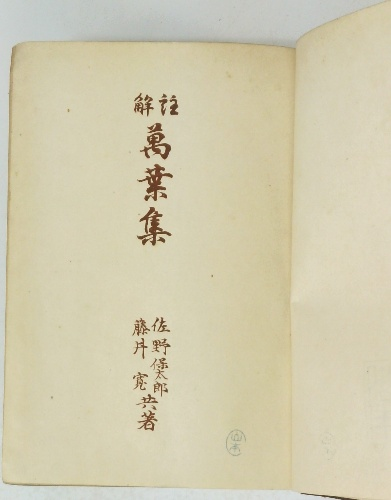 註解
萬葉集
佐野保太郎
藤井寛
共著